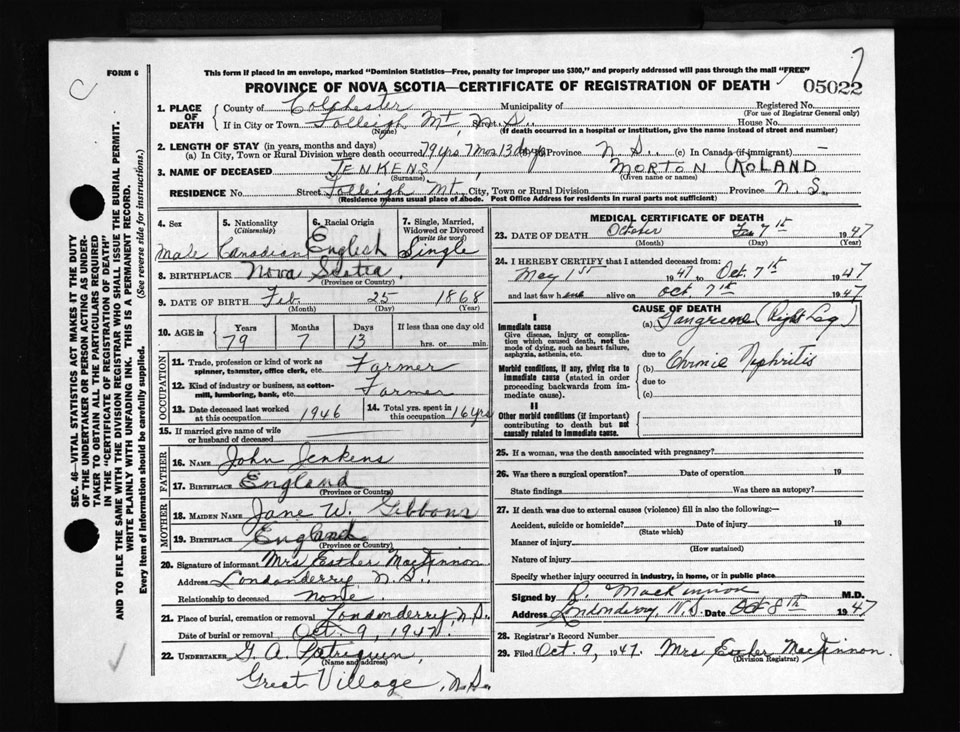 C
7
FORM 6
This form if placed in an envelope, marked "Dominion Statistics—Free, penalty for improper use $300," and properly addressed will pass through the mail "FREE"
PROVINCE OF NOVA SCOTIA—CERTIFICATE OF REGISTRATION OF DEATH 05022
SEC. 46—VITAL STATISTICS ACT MAKES IT THE DUTY
OF THE UNDERTAKER OR PERSON ACTING AS UNDER-
TAKER TO OBTAIN ALL THE PARTICULARS REQUIRED
IN THE "CERTIFICATE OF REGISTRATION OF DEATH"
AND TO FILE THE SAME WITH THE DIVISION REGISTRAR WHO SHALL ISSUE THE BURIAL PERMIT.
WRITE PLAINLY WITH UNFADING INK. THIS IS A PERMANENT RECORD.
Every item of information should be carefully supplied. (See reverse side for instructions.)
1. PLACE OF DEATH County of Colchester Municipality of Registered No.
(For use of Registrar General only)
If in City or Town Folleigh Mt, N.S. Street House No.
(Name) (If death occurred in a hospital or institution, give the name instead of street and number)
2. LENGTH OF STAY (in years, months and days)
(a) In City, Town or Rural Division where death occurred 79 yrs 7 Mos 13 days Province N.S. (c) In Canada (if immigrant) —
3. NAME OF DECEASED JENKENS, MORTON (ROLAND
(Surname) (Given name or names)
RESIDENCE No. Street Folleigh Mt. City, Town or Rural Division Province N.S.
(Residence means usual place of abode. Post Office Address for residents in rural parts not sufficient)
4. Sex 5. Nationality (Citizenship) 6. Racial Origin 7. Single, Married, Widowed or Divorced (write the word)
Male Canadian English Single
8. BIRTHPLACE Nova Scotia.
(Province or Country)
9. DATE OF BIRTH Feb 25 1868
(Month) (Day) (Year)
10. AGE in Years Months Days If less than one day old
79 7 13 hrs. or min.
OCCUPATION
11. Trade, profession or kind of work as Farmer
spinner, teamster, office clerk, etc.
12. Kind of industry or business, as cotton- Farmer
mill, lumbering, bank, etc.
13. Date deceased last worked at this occupation 1946 14. Total yrs. spent in this occupation 16 yrs
15. If married give name of wife
or husband of deceased
FATHER
16. NAME John Jenkens
17. BIRTHPLACE England
(Province or Country)
MOTHER
18. MAIDEN NAME Jane W. Gibbons
19. BIRTHPLACE England
(Province or Country)
20. Signature of informant Mrs Esther MacKinnon
Address Londonderry, N.S.
Relationship to deceased none.
21. Place of burial, cremation or removal Londonderry, N.S.
Date of burial or removal Oct. 9, 1947.
22. UNDERTAKER G. A. Patriquin,
(Name and address)
Great Village, N.S.
MEDICAL CERTIFICATE OF DEATH
23. DATE OF DEATH October 7th 1947
(Month) (Day) (Year)
24. I HEREBY CERTIFY that I attended deceased from:
May 1st 1947 to Oct. 7th 1947
and last saw h alive on Oct. 7th 1947
CAUSE OF DEATH
I
Immediate cause (a) Gangrene (Right Leg)
Give disease, injury or complica-
tion which caused death, not the
mode of dying, such as heart failure,
asphyxia, asthenia, etc.
due to
Morbid conditions, if any, giving rise to (b) Chronic Nephritis
immediate cause (stated in order due to
proceeding backwards from im-
mediate cause). (c)
II
Other morbid conditions (if important)
contributing to death but not
causally related to immediate cause.
25. If a woman, was the death associated with pregnancy?
26. Was there a surgical operation? Date of operation 19
State findings Was there an autopsy?
27. If death was due to external causes (violence) fill in also the following:—
Accident, suicide or homicide? Date of injury 19
(State which)
Manner of injury
(How sustained)
Nature of injury
Specify whether injury occurred in industry, in home, or in public place
Signed by R. MacKinnon M.D.
Address Londonderry N.S. Date Oct 8th 1947
28. Registrar's Record Number
29. Filed Oct. 9, 1947. Mrs Esther MacKinnon.
(Division Registrar)